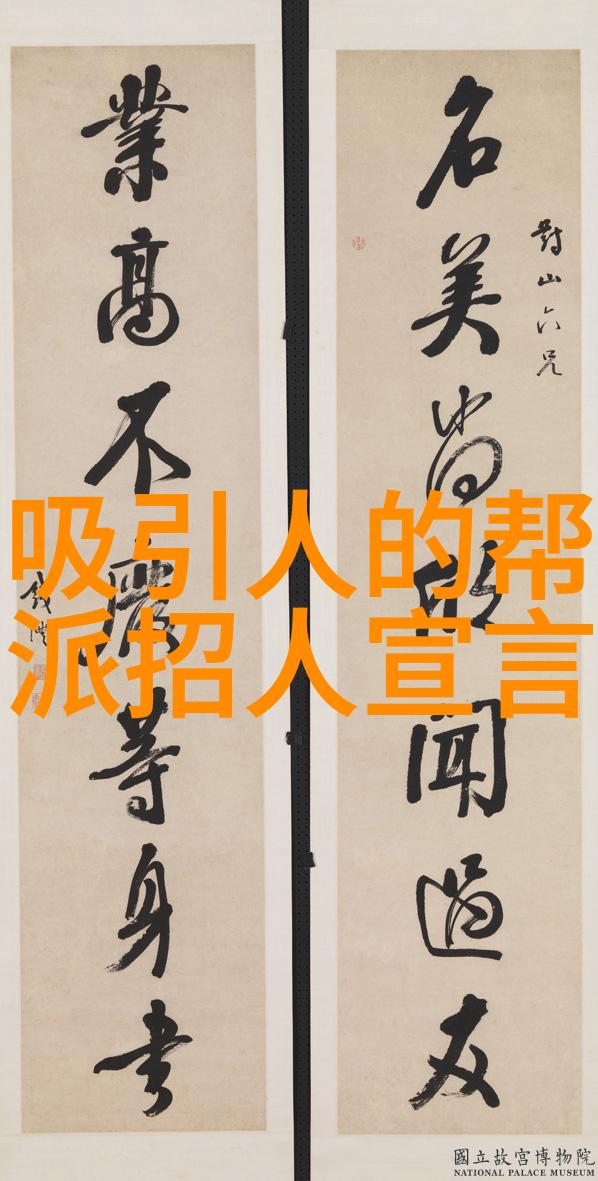 對山六兄
名美尚欣聞過友
業高不廢等身書
吸引人的帮
派招人宣言
國立故宮博物院
NATIONAL PALACE MUSEUM